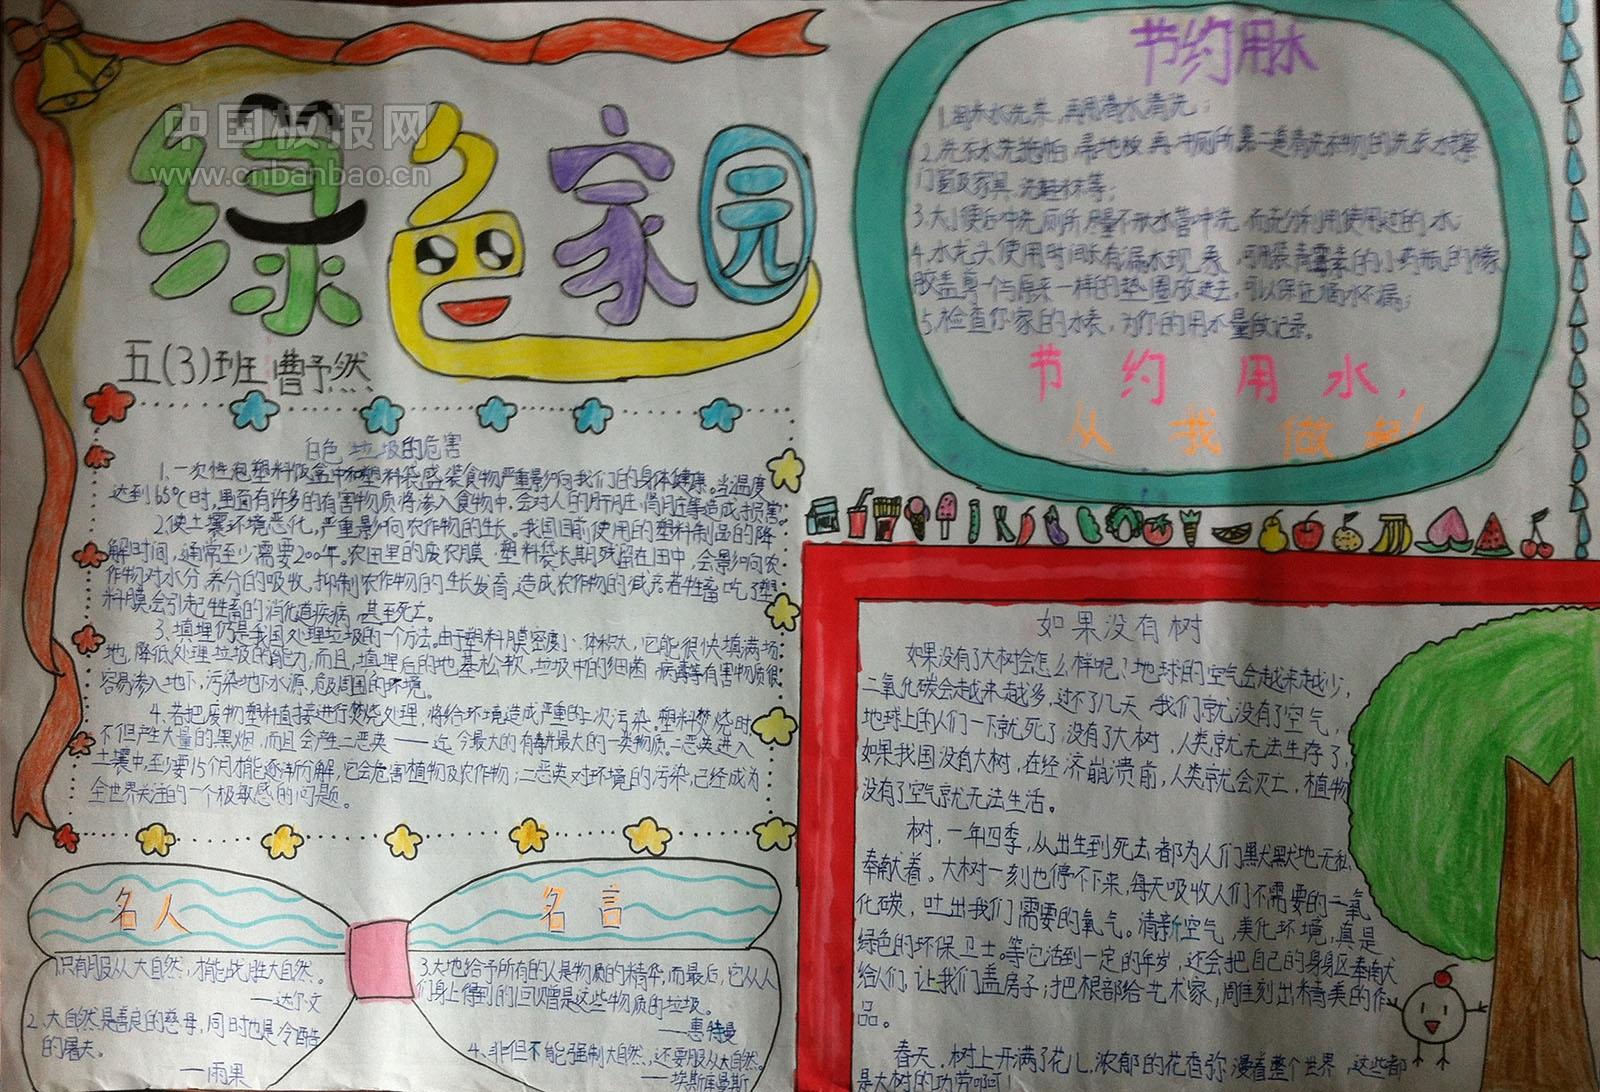 中国板报网
www.cnbanbao.cn
绿色家园
五(3)班 曹予然
白色垃圾的危害
1、一次性泡塑料饭盒中和塑料袋盛装食物严重影响我们的身体健康。当温度
达到65℃时,里面有许多的有害物质将渗入食物中,会对人的肝脏、肾脏等造成损害。
2、使土壤环境恶化,严重影响农作物的生长。我国目前使用的塑料制品的降
解时间,通常至少需要200年。农田里的废农膜、塑料袋长期残留在田中,会影响农
作物对水分、养分的吸收,抑制农作物的生长发育,造成农作物的减产。若牲畜吃了塑
料膜,会引起牲畜的消化道疾病,甚至死亡。
3、填埋仍是我国处理垃圾的一个方法。由于塑料膜密度小、体积大,它能很快填满场
地,降低处理垃圾的能力,而且,填埋后的地基松软,垃圾中的细菌、病毒等有害物质很
容易渗入地下,污染地下水源,危及周围的环境。
4、若把废物塑料直接进行焚烧处理,将给环境造成严重的二次污染。塑料焚烧时,
不但产生大量的黑烟,而且会产生二恶英——迄今最大的有毒性最大的一类物质。二恶英进入
土壤中,至少要15个月才能逐渐分解,它会危害植物及农作物;二恶英对环境的污染,已经成为
全世界关注的一个极敏感的问题。
名人 名言
1.只有服从大自然,才能战胜大自然。
——达尔文
2、大自然是善良的慈母,同时也是冷酷
的屠夫。
——雨果
3.大地给予所有的人是物质的精华,而最后,它从人
们身上得到的回赠是这些物质的垃圾。
——惠特曼
4、非但不能强制大自然,还要服从大自然。
——埃斯库曼斯
节约用水
1.用淘米水洗菜,再用清水清洗;
2.洗衣水洗拖帕、帚地板、再冲厕所。第二道清洗衣物的洗衣水擦
门窗及家具、洗鞋袜等;
3.大小便后冲洗厕所,尽量不用水管冲洗,而充分利用使用过的水;
4.水龙头使用时间长有漏水现象,可用装青霉素的小药瓶的橡
胶盖剪一个与原来一样的垫圈放进去,可以保证滴水不漏;
5.检查你家的水表,为你的用水量做记录。
节约用水,
从我做起!
如果没有树
如果没有了大树会怎么样呢?地球的空气会越来越少,
二氧化碳会越来越多,过不了几天,我们就没有了空气,
地球上的人们一下就死了,没有了大树,人类就无法生存了,
如果我国没有大树,在经济崩溃前,人类就会灭亡,植物
没有了空气就无法生活。
树,一年四季,从出生到死去,都为人们默默地无私
奉献着。大树一刻也停不下来,每天吸收人们不需要的二氧
化碳,吐出我们需要的氧气。清新空气,美化环境,真是
绿色的环保卫士。等它活到一定的年岁,还会把自己的身躯奉献
给人们,让我们盖房子;把根部给艺术家,雕刻出精美的作
品。
春天,树上开满了花儿,浓郁的花香弥漫着整个世界,这些都
是大树的功劳啊!